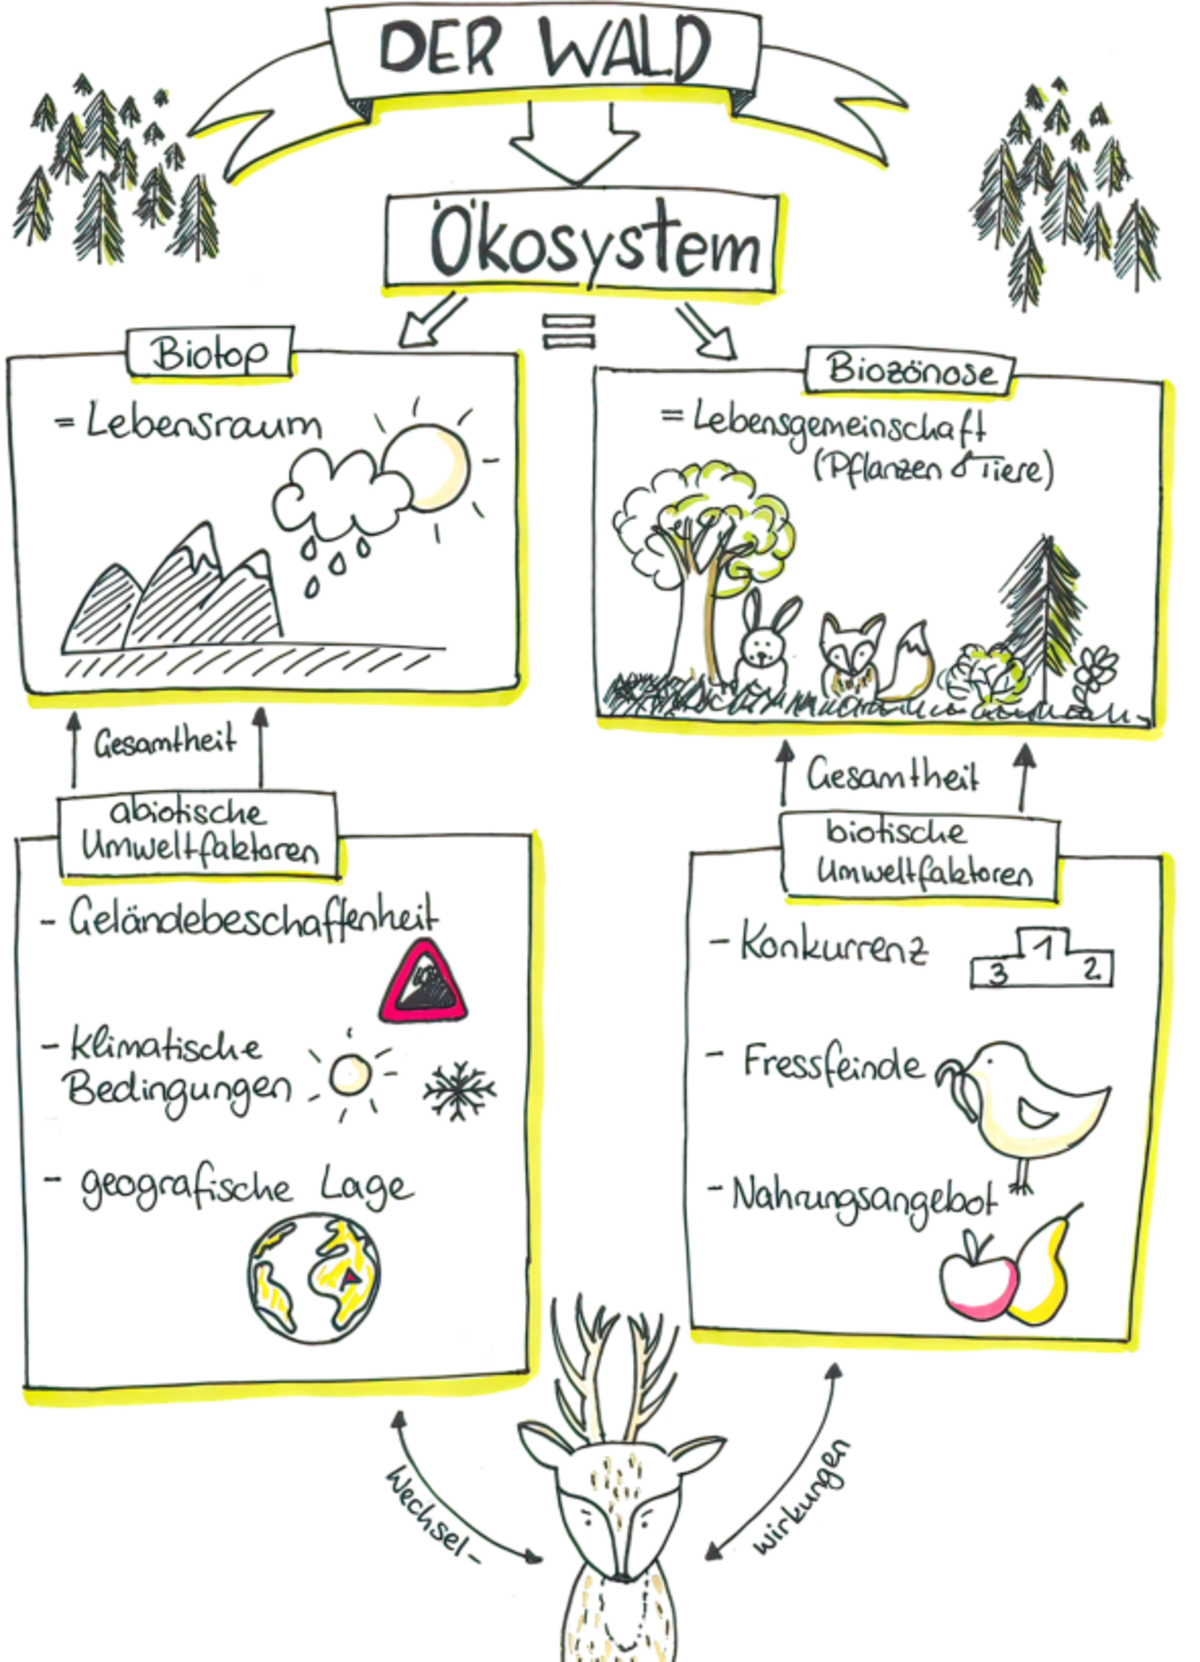 DER WALD
Ökosystem
=
Biotop
= Lebensraum
Biozönose
= Lebensgemeinschaft
(Pflanzen & Tiere)
Gesamtheit
abiotische
Umweltfaktoren
- Geländebeschaffenheit
- Klimatische
Bedingungen
- geografische Lage
Gesamtheit
biotische
Umweltfaktoren
- Konkurrenz
1
3 2
- Fressfeinde
- Nahrungsangebot
Wechsel-
wirkungen